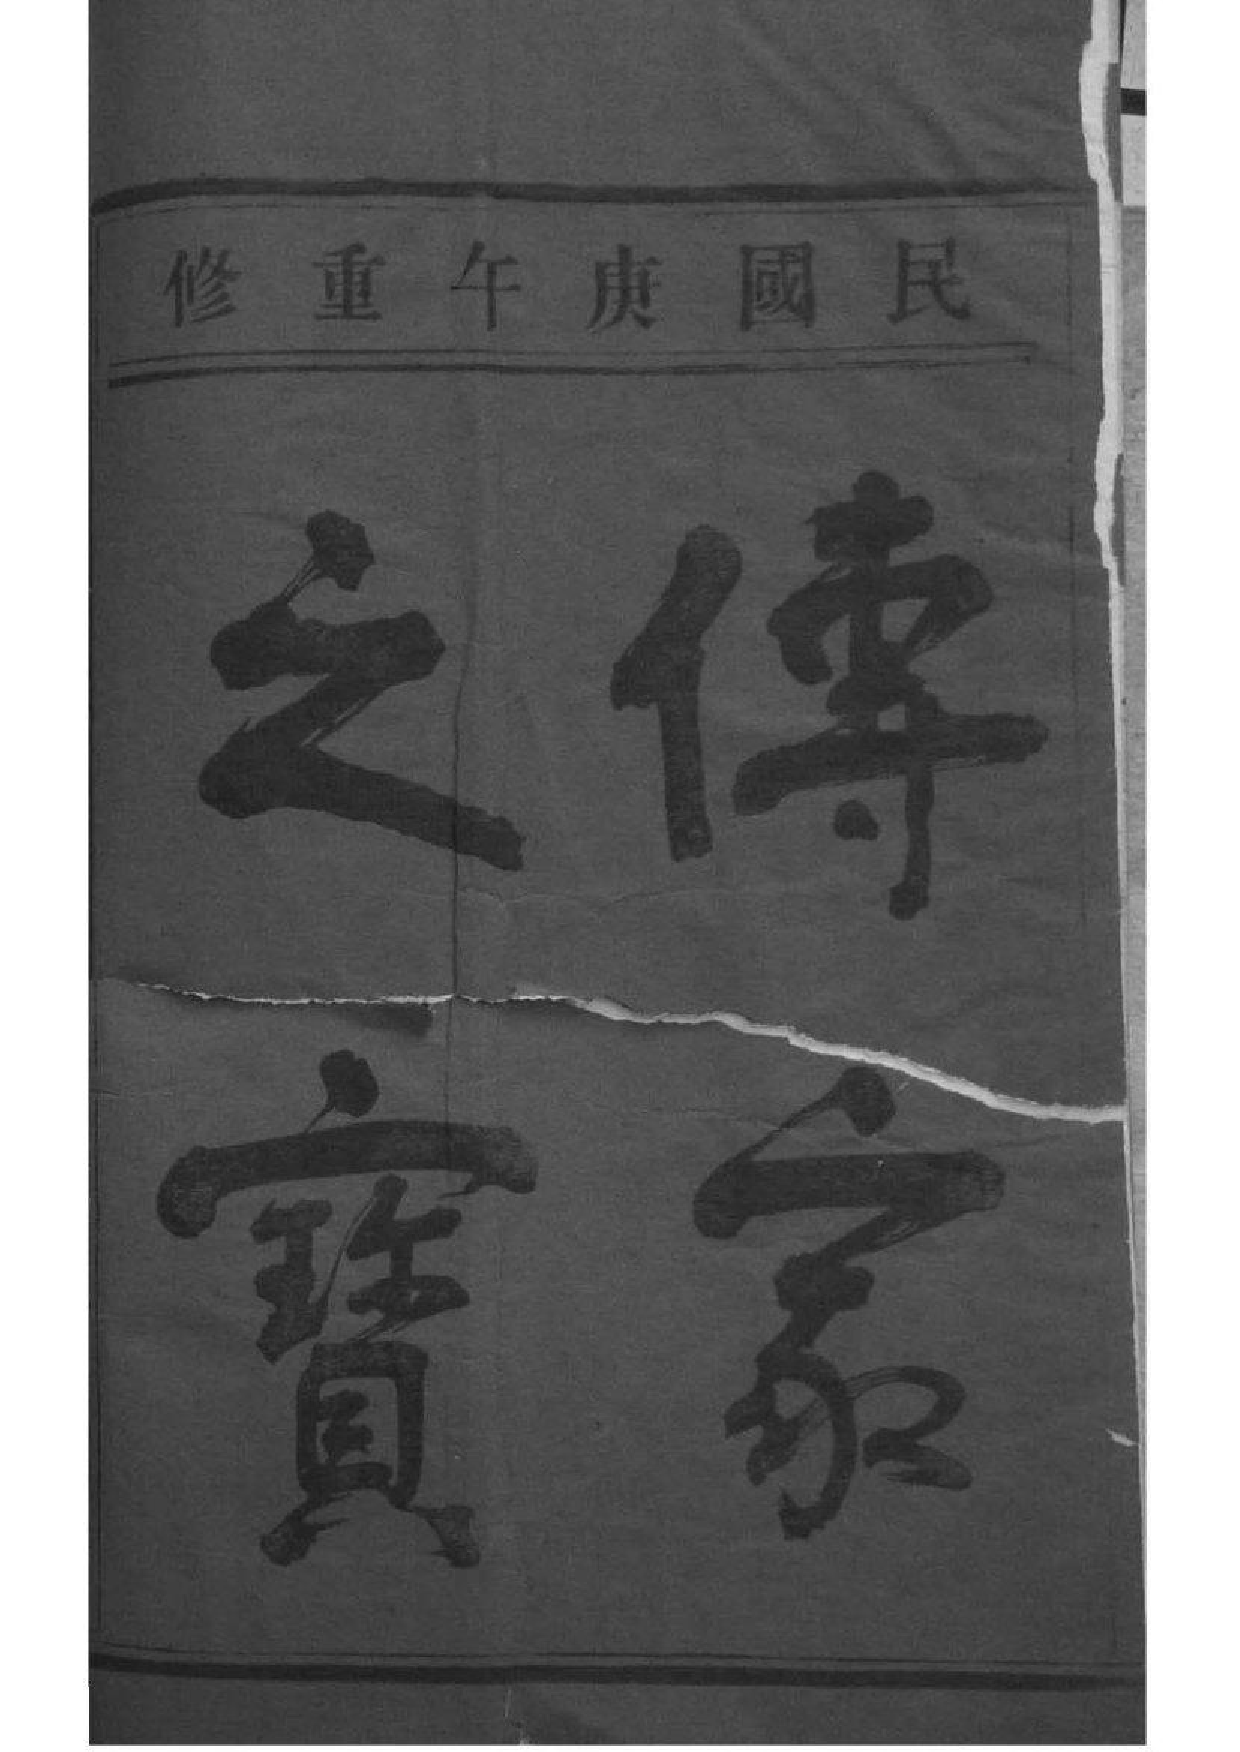 民國庚午重修
傳家
之寶